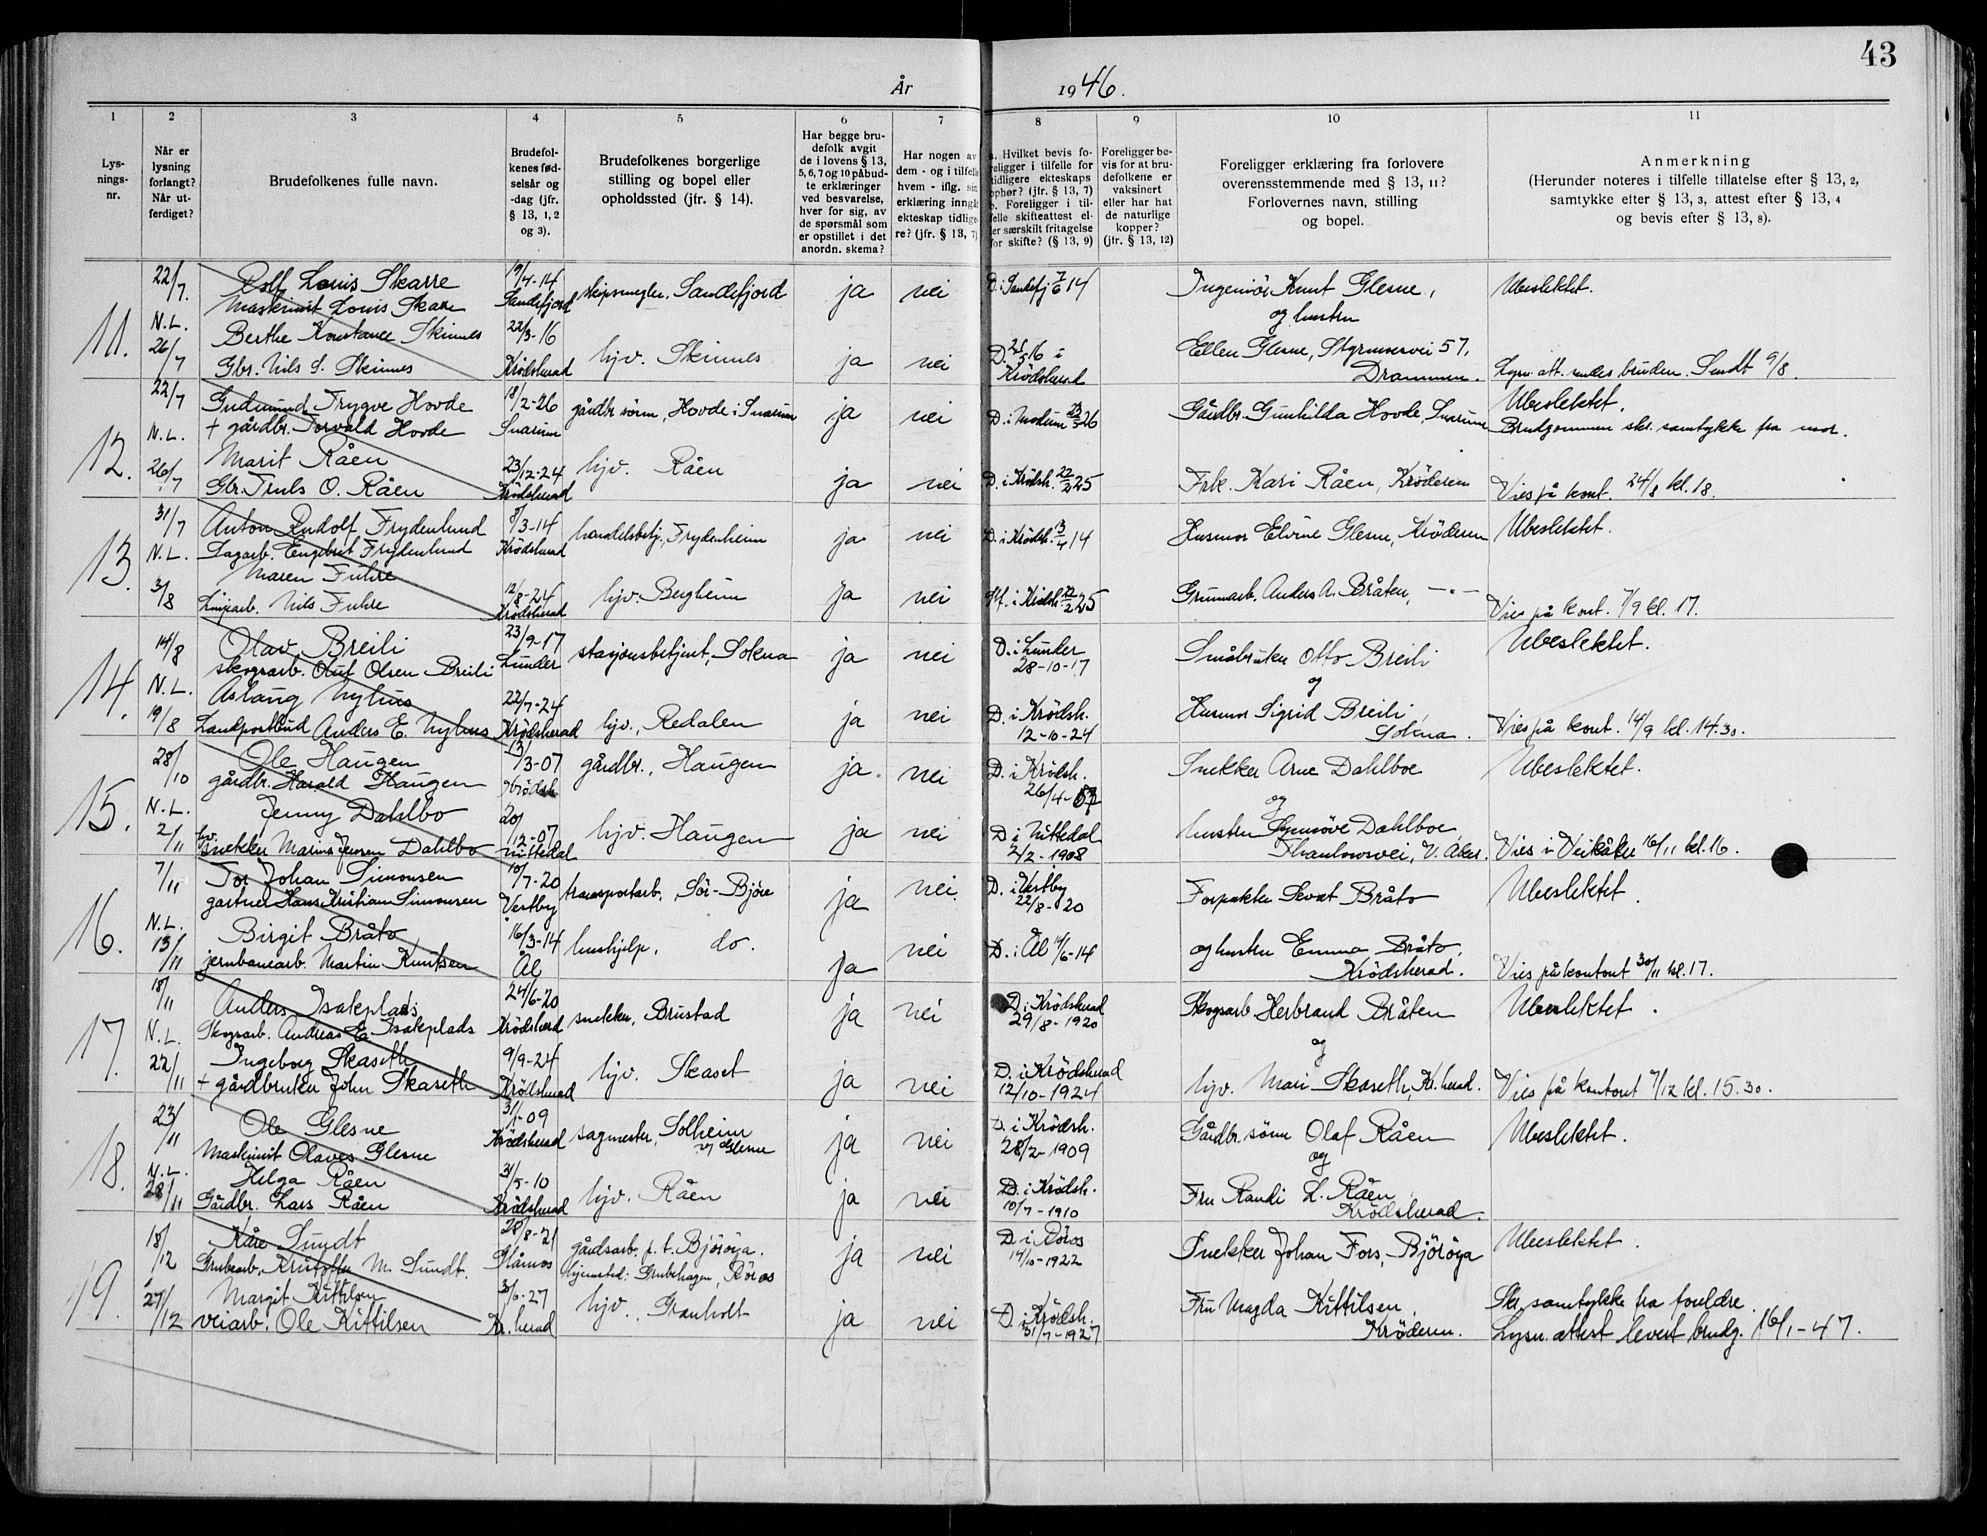 43
År 1946.
1 2 3 4 5 6 7 8 9 10 11
Lys-
nings-
nr.
Når er
lysning
forlangt?
Når ut-
ferdiget?
Brudefolkenes fulle navn.
Brudefol-
kenes fød-
selsår og
-dag (jfr.
§ 13, 1, 2
og 3).
Brudefolkenes borgerlige
stilling og bopel eller
opholdssted (jfr. § 14).
Har begge bru-
defolk avgit
de i lovens § 13,
5, 6, 7 og 10 påbud-
te erklæringer
ved besvarelse,
hver for sig, av
de spørsmål som
er opstillet i det
anordn. skema?
Har nogen av
dem - og i tilfelle
hvem - iflg. sin
erklæring inngåt
ekteskap tidlige-
re? (jfr. § 13, 7)
a. Hvilket bevis fo-
religger i tilfelle for
tidligere ekteskaps
ophør? (jfr. § 13, 7)
b. Foreligger i til-
felle skifteattest el-
ler særskilt fritagelse
for skifte? (§ 13, 9)
Foreligger be-
vis for at bru-
defolkene er
vaksinert
eller har hat
de naturlige
kopper?
(jfr. § 13, 12)
Foreligger erklæring fra forlovere
overensstemmende med § 13, 11?
Forlovernes navn, stilling
og bopel.
Anmerkning
(Herunder noteres i tilfelle tillatelse efter § 13, 2,
samtykke efter § 13, 3, attest efter § 13, 4
og bevis efter § 13, 8).
11.
22/7. Rolf Louis Skarre 19/4-14 skipsmegler, Sandefjord ja nei D. i Sandefj 7/6 14 Ingeniør Knut Glesne, Ubeslektet.
Maskinist Louis Skarre Sandefjord og hustru
N.L. Berthe Konstance Skinnes 22/3-16 hjv. Skinnes ja nei D. 21/5 16 i Ellen Glesne, Styrmosvei 57,
26/7 Gbr. Nils S. Skinnes Krødsherad Krødsherad Drammen. Lysn. att. sendes bruden. Sendt 9/8.
12.
22/7 Gudmund Trygve Hovde 18/2-26 gårdbr. sønn, Hovde i Snarum ja nei D. i Modum 26 Gårdbr. Gunhilda Hovde, Snarum Ubeslektet.
N.L. + gårdbr. Torvald Hovde Snarum Brudgommen skr. samtykke fra mor.
Marit Råen 23/12-24 hjv. Råen ja nei D. i Krødsh. 22/2 25 Frk. Kari Råen, Krøderen
26/7 Gbr. Truls O. Råen Krødsherad Vies på kont. 24/8 kl. 18.
13.
31/7 Anton Rudolf Frydenlund 8/3-14 handelsbetj., Frydenheim ja nei D. i Krødsh. 13/4 14 Husmor Elvine Glesne, Krøderen Ubeslektet.
N.L. Lagarb. Engebret Frydenlund Krødsherad
Maren Fuhre 12/8-24 hjv. Bergheim ja nei Kf. i Krødsh. 22/2 25 Grunnarb. Anders A. Bråten, — " —
3/8 Linjearb. Nils Fuhre Krødsherad Vies på kont. 7/9 kl. 17.
14.
14/8 Olav Breili 23/9-17 stasjonsbetjent, Sokna ja nei D. i Lunder Småbruker Otto Breili Ubeslektet.
skogsarb. Oluf Olsen Breili Lunder 28-10-17 og
N.L. Aslaug Nyhus 22/7-24 hjv. Redalen ja nei D. i Krødsh. Husmor Sigrid Breili,
19/8 Landpostbud Anders E. Nyhus Krødsherad 12-10-24 Sokna. Vies på kont. 14/9 kl. 14.30.
15.
28/10 Ole Haugen 13/3-07 gårdbr., Haugen ja. nei D. i Krødsh. Snekker Arne Dahlboe Ubeslektet.
gårdbr. Harald Haugen Krødsh 26/4-07 og
N.L. Jenny Dahlbo 20/12-07 hjv. Haugen ja nei D. i Nittedal hustru Synnøve Dahlboe,
2/11 Snekker Marius Jensen Dahlbo Nittedal 2/2-1908 Thaulowsvei, V. Aker. Vies i Veikåker 16/11 kl. 16.
16.
7/11 Tor Johan Simonsen 10/7-20 transportarb. Sør-Bjøre ja nei. D. i Vestby Forpakter Sevat Bråto Ubeslektet.
gartner Hans Kristian Simonsen Vestby 22/8-20
N.L. Birgit Bråto 16/3-14 hushjelp, do. ja nei D. i Ål 11/6-14 og hustru Emma Bråto,
13/11 jernbanearb. Martin Knutsen Ål Krødsherad. Vies på kontoret 30/11 kl. 17.
17.
18/11 Anders Isakplads 24/6-20 snekker, Brustad ja nei D. i Krødsherad Skogsarb Herbrand Bråten Ubeslektet.
N.L. Skogsarb. Andreas E. Isakplads Krødsherad 29/8-1920 og
Ingeborg Skaseth 9/9-24 hjv. Skaset ja nei D. i Krødsherad
22/11 + gårdbruker John Skaseth Krødsherad 12/10-1924 hjv. Mari Skaseth, Kr.herad. Vies på kontoret 7/12 kl. 15.30.
18.
23/11 Ole Glesne 31/1-09 sagmester, Solheim ja nei D. i Krødsh. Gårdbr. sønn Olaf Råen Ubeslektet.
Maskinist Olaves Glesne Krødsherad v/ Glesne 28/2-1909 og
N.L. Helga Råen 31/5-10 hjv. Råen ja nei D. i Krødsh. Fru Randi L. Råen
28/11 Gårdbr. Lars Råen Krødsherad 10/7-1910 Krødsherad.
19.
18/12 Kåre Sundt 20/8-21 gårdsarb. p.t. Bjørøya. ja nei D. i Røros Snekker Johan Fors, Bjørøya Ubeslektet.
Grubearb. Kristoffer M. Sundt. Glåmos hjemsted: Grubehagen, Røros 14/10-1922
Margit Kittilsen 3/6-27 hjv., Granholt ja nei D. i Krødsh. Fru Magda Kittilsen, Skr. samtykke fra foreldre.
27/12 veiarb. Ole Kittilsen Kr.herad 31/7-1927 Krøderen. Lysn. attest levert brudg. 16/1-47.